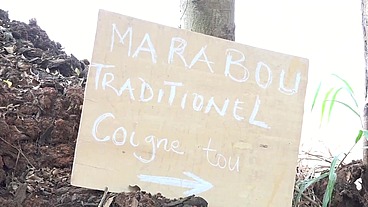 MARABOU
TRADITIONEL
Cogne tou